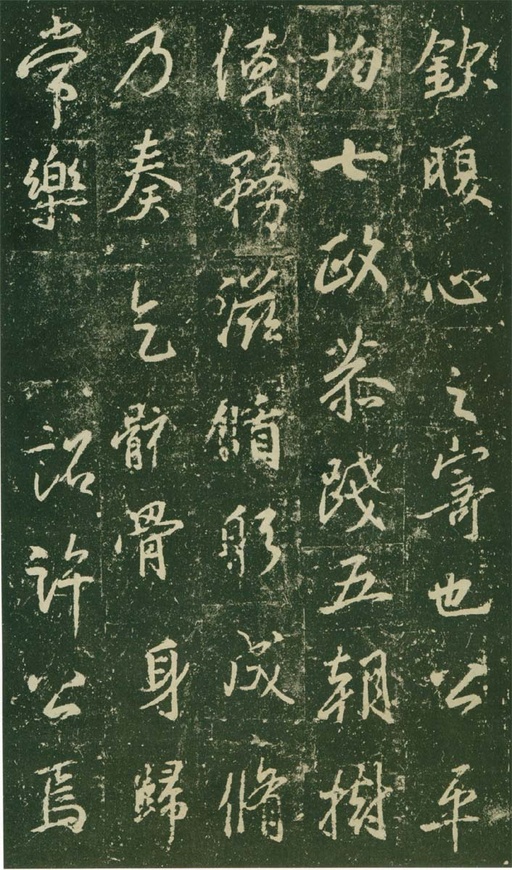 欽腹心之寄也公平
均七政恭踐五朝樹
德務滋躬脩
乃奏乞骸骨身歸
常樂　詔許公焉